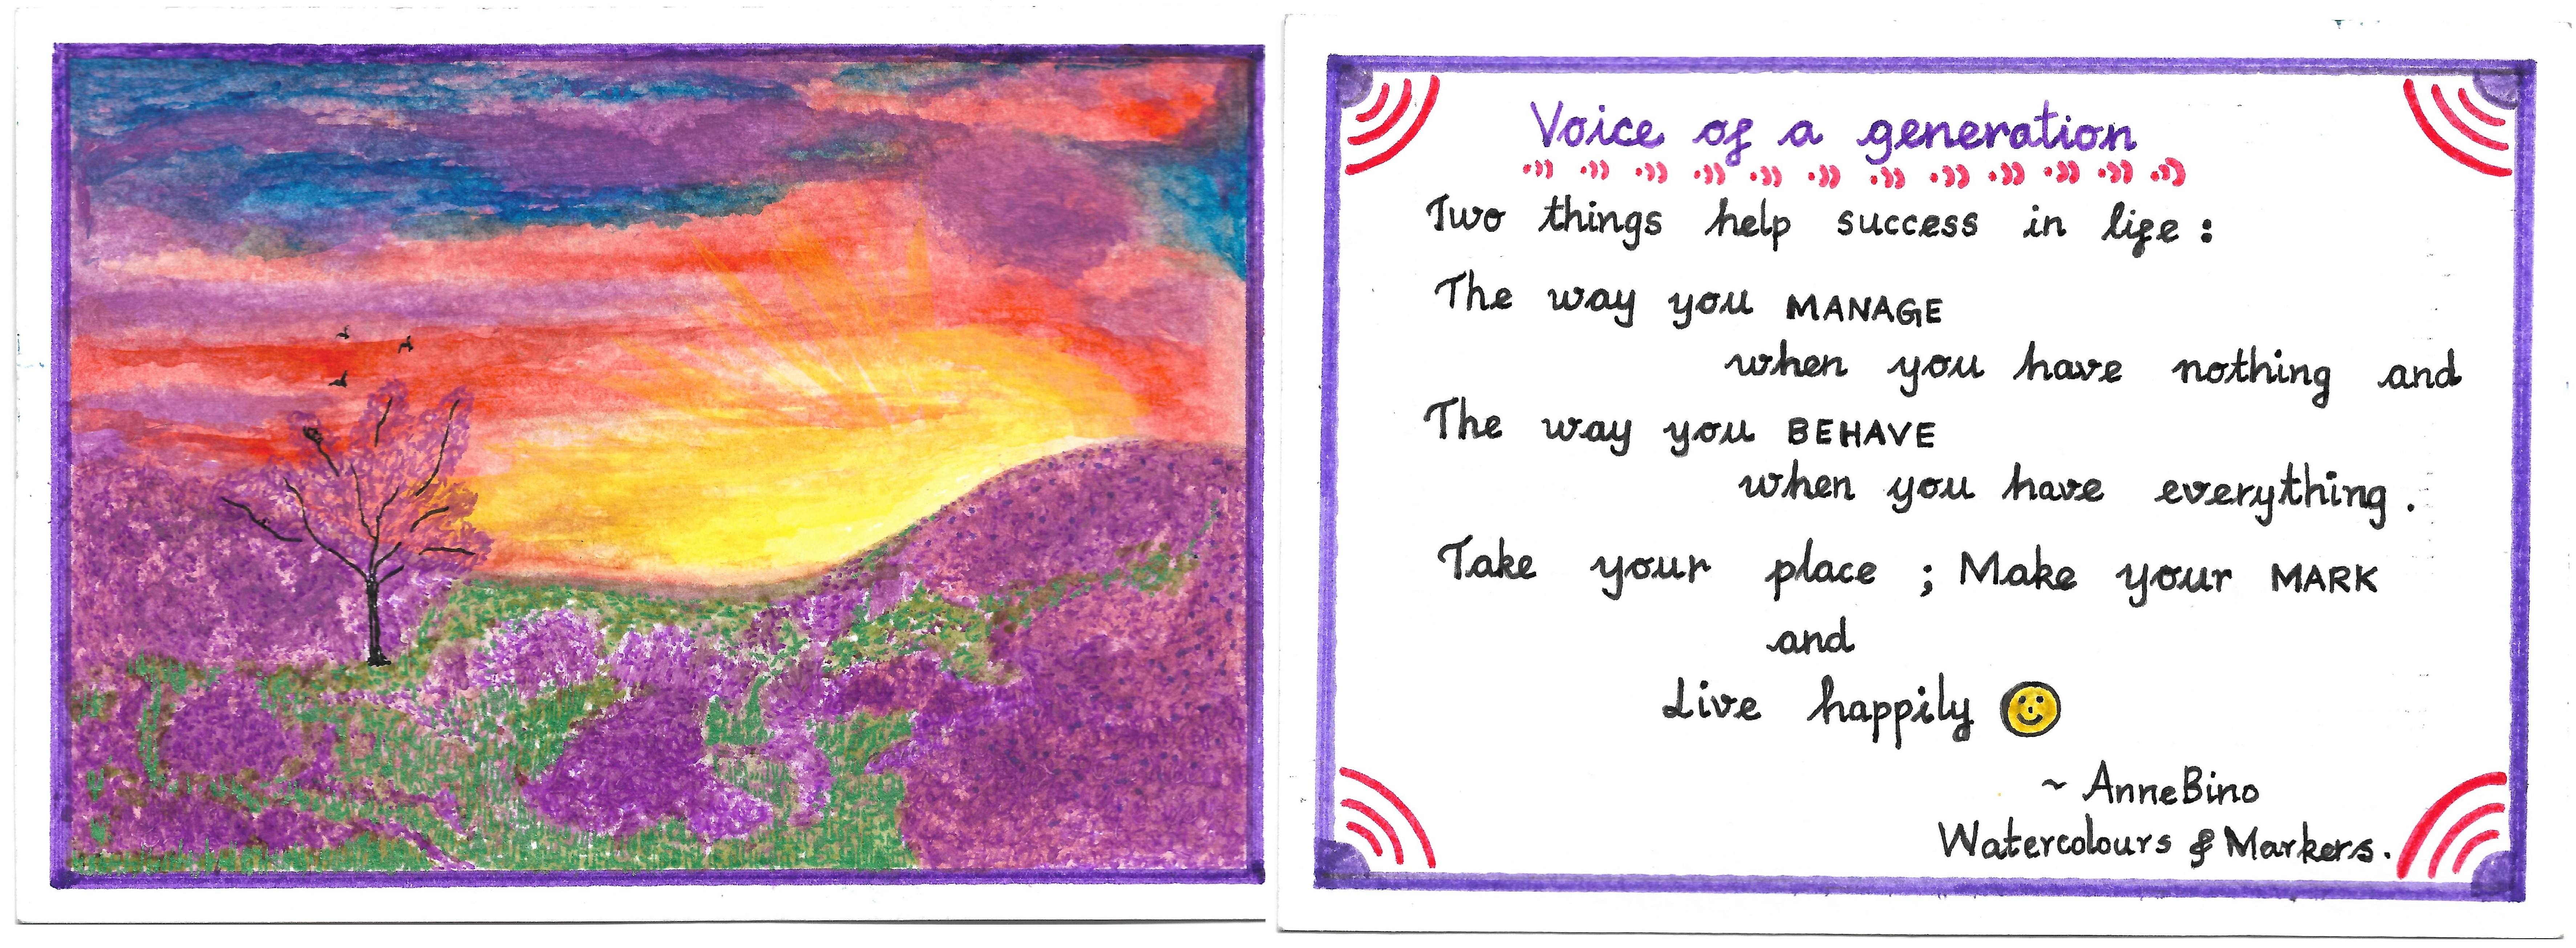 Voice of a generation
Two things help success in life :
The way you MANAGE
when you have nothing and
The way you BEHAVE
when you have everything .
Take your place ; Make your MARK
and
Live happily
~ AnneBino
Watercolours & Markers.